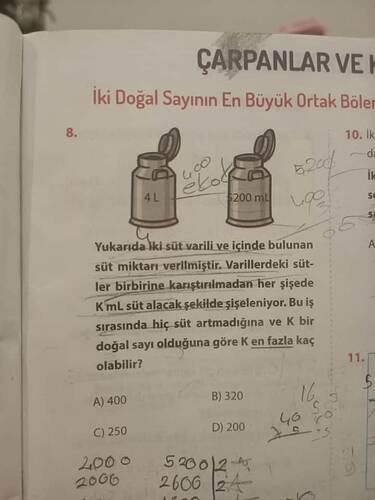 ÇARPANLAR VE K
İki Doğal Sayının En Büyük Ortak Böler
8.
4 L
5200 mL
400
ekok
5200
400
4
Yukarıda iki süt varili ve içinde bulunan
süt miktarı verilmiştir. Varillerdeki süt-
ler birbirine karıştırılmadan her şişede
K mL süt alacak şekilde şişeleniyor. Bu iş
sırasında hiç süt artmadığına ve K bir
doğal sayı olduğuna göre K en fazla kaç
olabilir?
A) 400
B) 320
C) 250
D) 200
16
40
4000 5200 2
2000 2600 2
10. İk
da
İk
A
11.
5